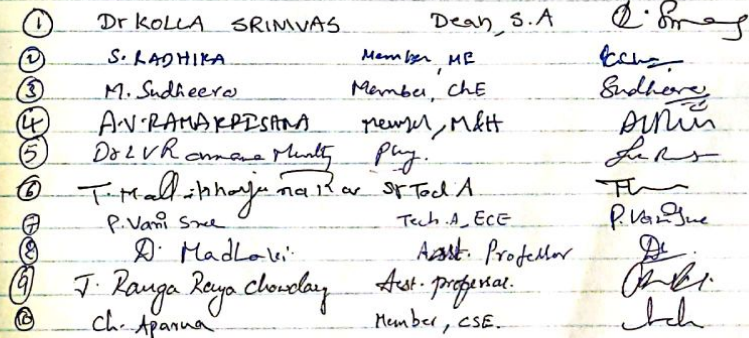 ① Dr KOLLA SRINIVAS Dean, S.A
② S. RADHIKA Member, ME
③ M. Sudheera Member, ChE Sudheera
④ A.V. RAMAKRISHNA Member, M&H
⑤ Dr L V Ramana Murthy Phy.
⑥ T. Mallikharjuna Rao Sr Tech A
⑦ P. Vani Sree Tech. A, ECE P. Vani Sree
⑧ D. Madhavi Asst. Professor
⑨ J. Ranga Raya Chowdary Asst. professor.
⑩ Ch. Aparna Member, CSE.